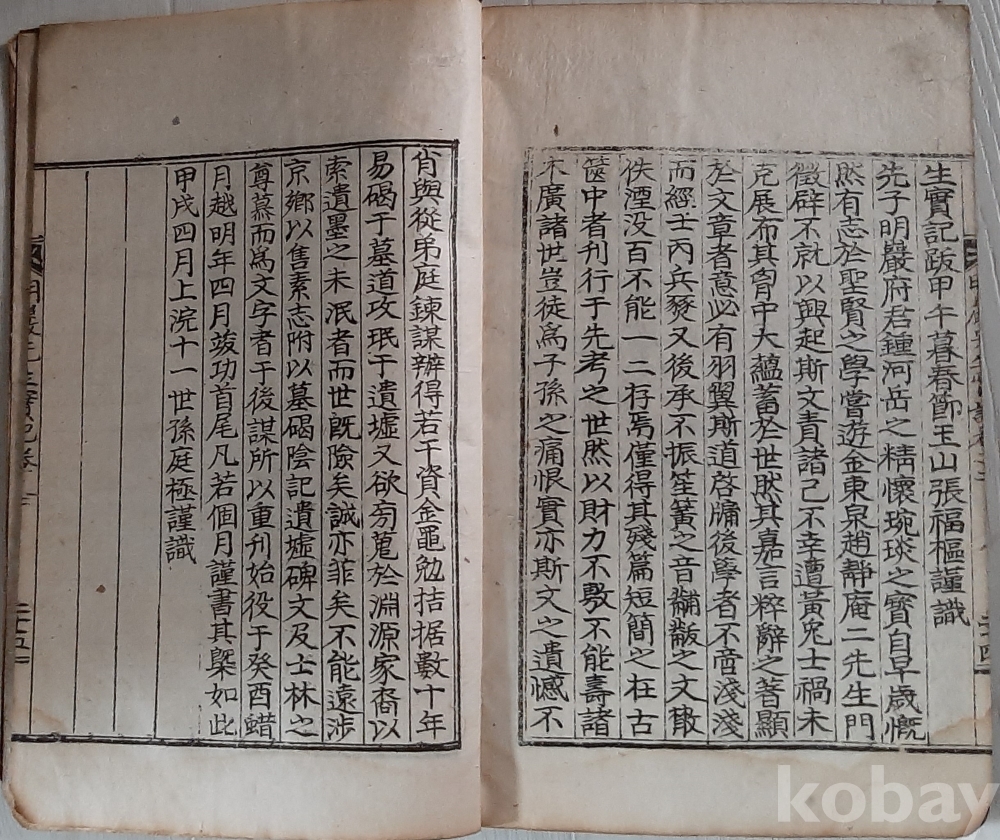 生實記跋甲午暮春節玉山張福樞謹識
先子明巖府君鍾河岳之精懷琬琰之寶自早歲慨
然有志於聖賢之學嘗遊金東泉趙靜庵二先生門
徵辟不就以興起斯文責諸己不幸遭黃兔士禍未
克展布其胷中大蘊蓄於世然其嘉言粹辭之著顯
於文章者意必有羽翼斯道啓牖後學者不啻淺淺
而經壬丙兵燹又後承不振笙簧之音黼黻之文散
佚湮没百不能一二存焉僅得其殘篇短簡之在古
篋中者刊行于先考之世然以財力不敷不能壽諸
木廣諸世豈徒爲子孫之痛恨實亦斯文之遺憾不
二十四
肖與從弟庭鍊謀辨得若干資金黽勉拮据數十年
易碣于墓道攷珉于遺墟又欲旁蒐於淵源家裔以
索遺墨之未泯者而世既險矣誠亦菲矣不能遠涉
京鄉以售素志附以墓碣陰記遺墟碑文及士林之
尊慕而爲文字者于後謀所以重刊始役于癸酉蜡
月越明年四月竣功首尾凡若個月謹書其槩如此
甲戌四月上浣十一世孫庭極謹識
二十五
kobay